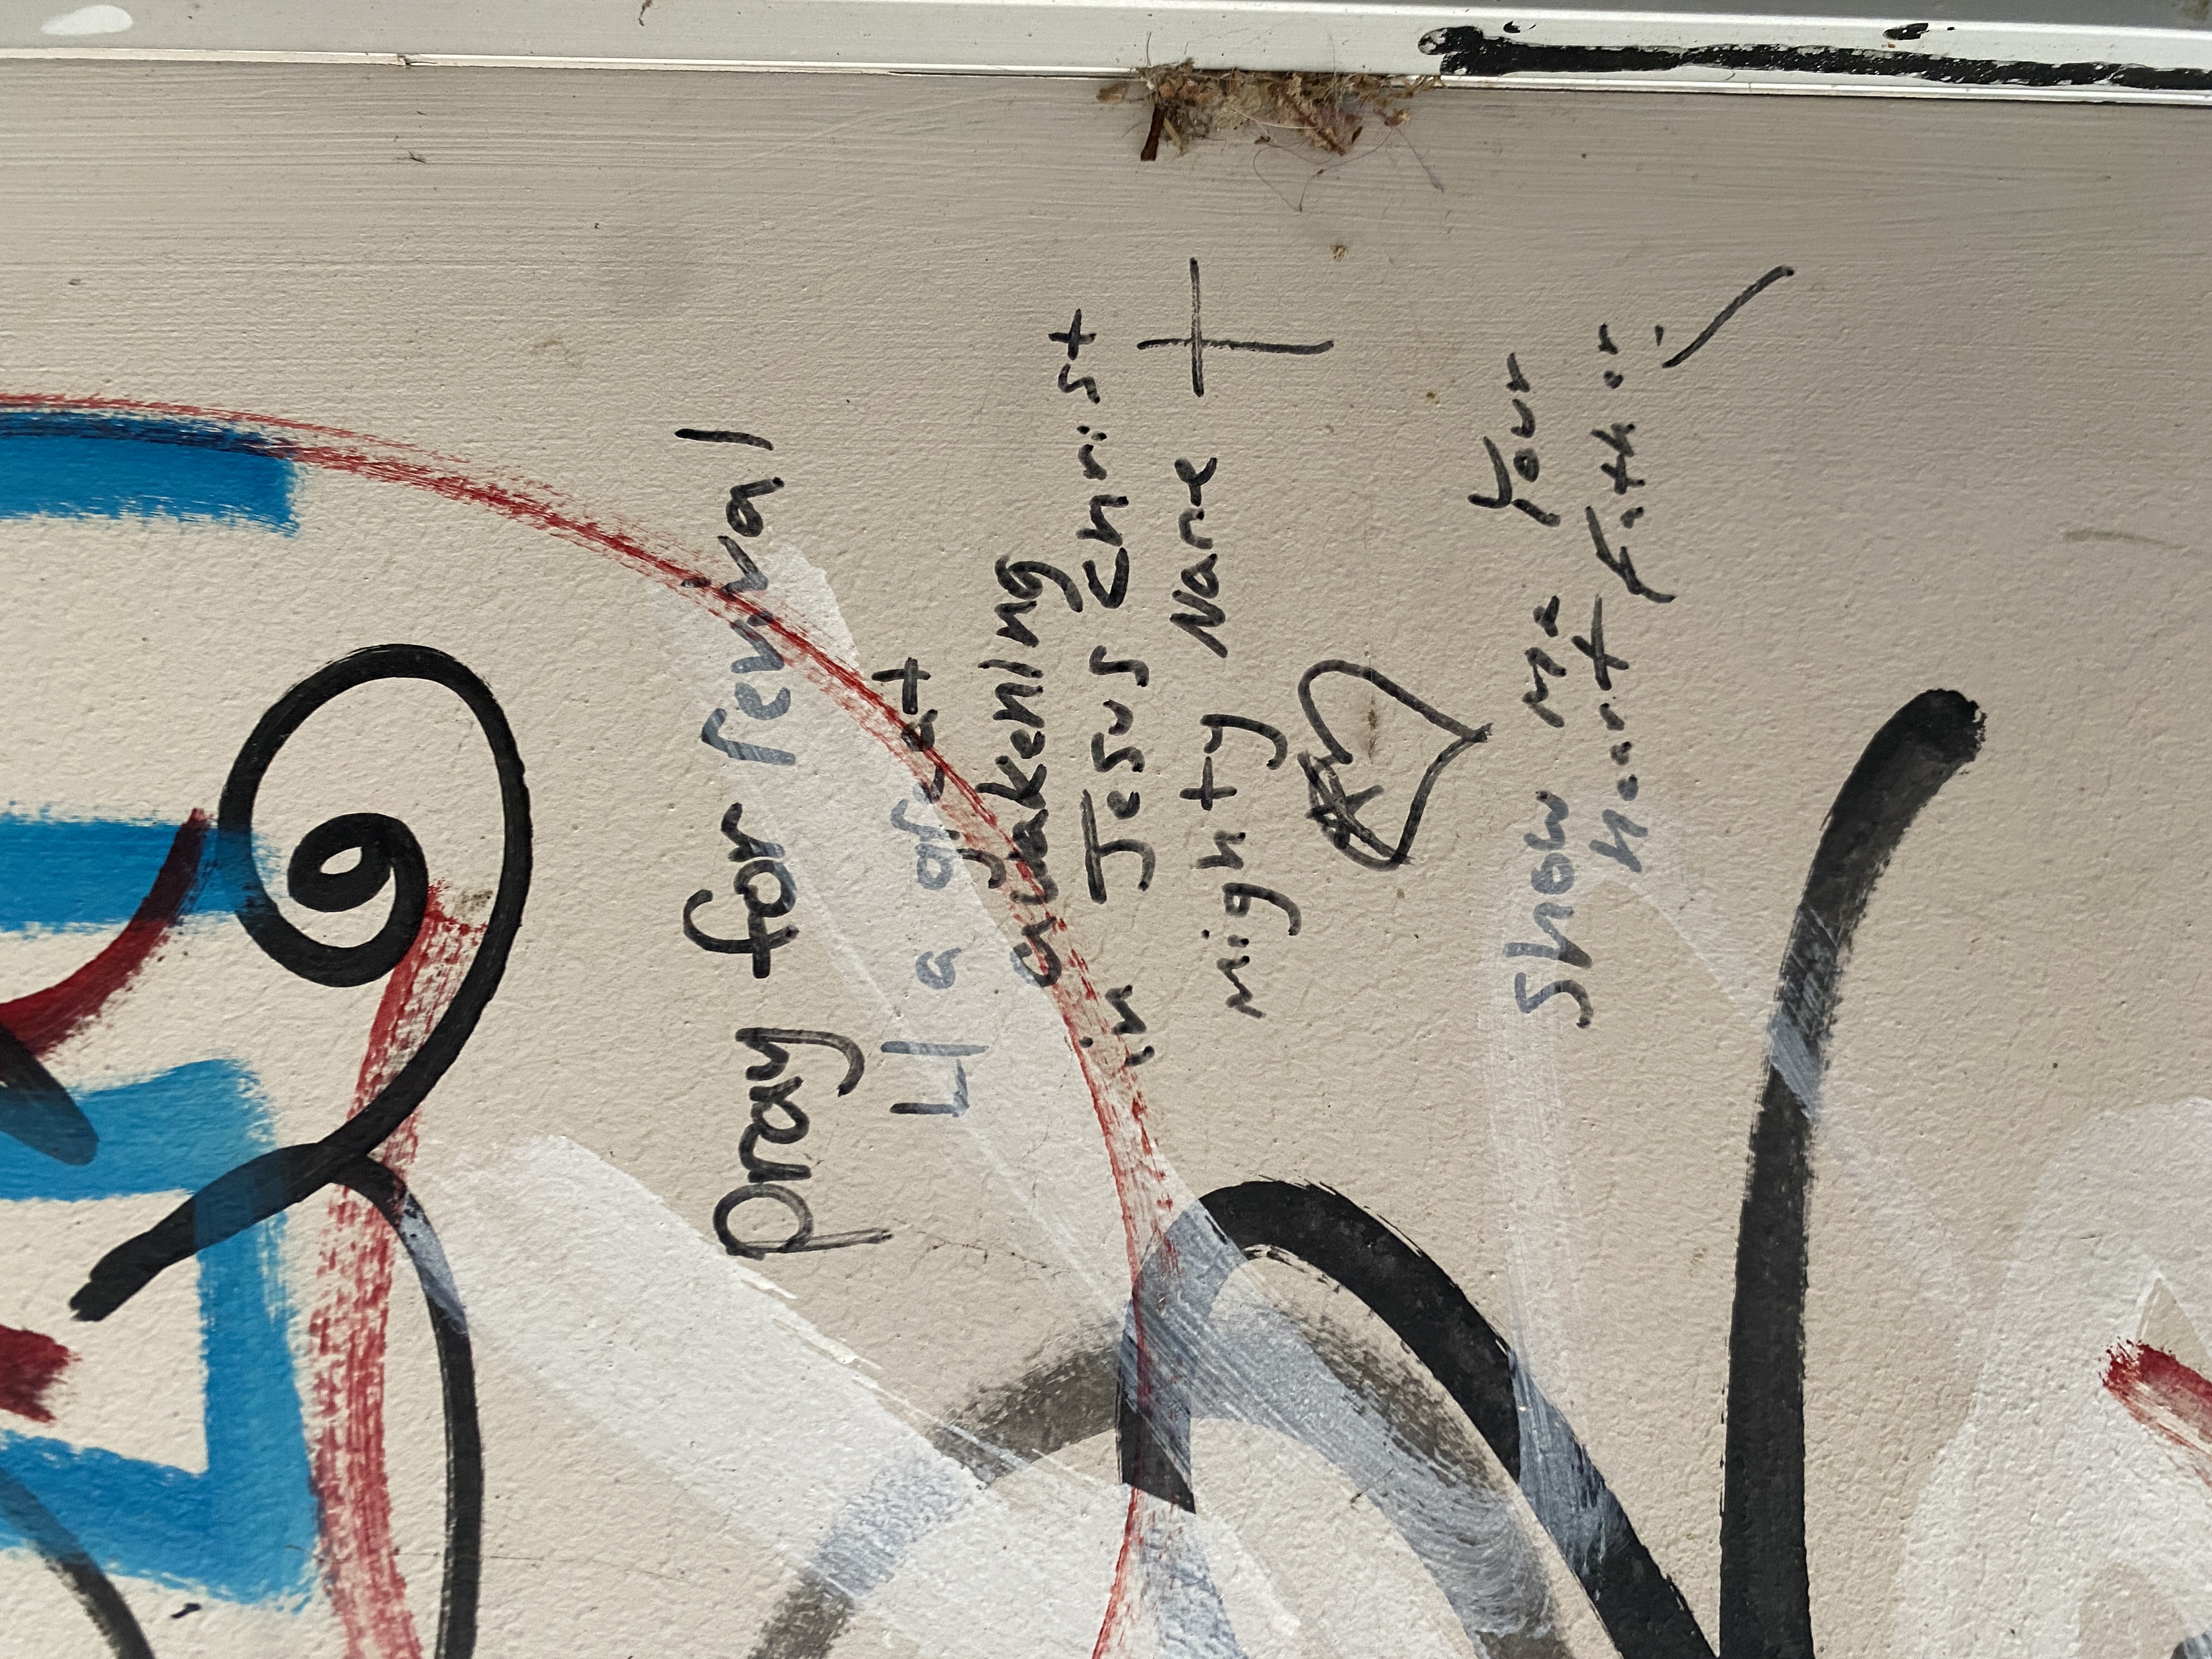 pray for revival
a great
awakening
in Jesus Christ
Mighty Name
Show Me Your
Heart Father